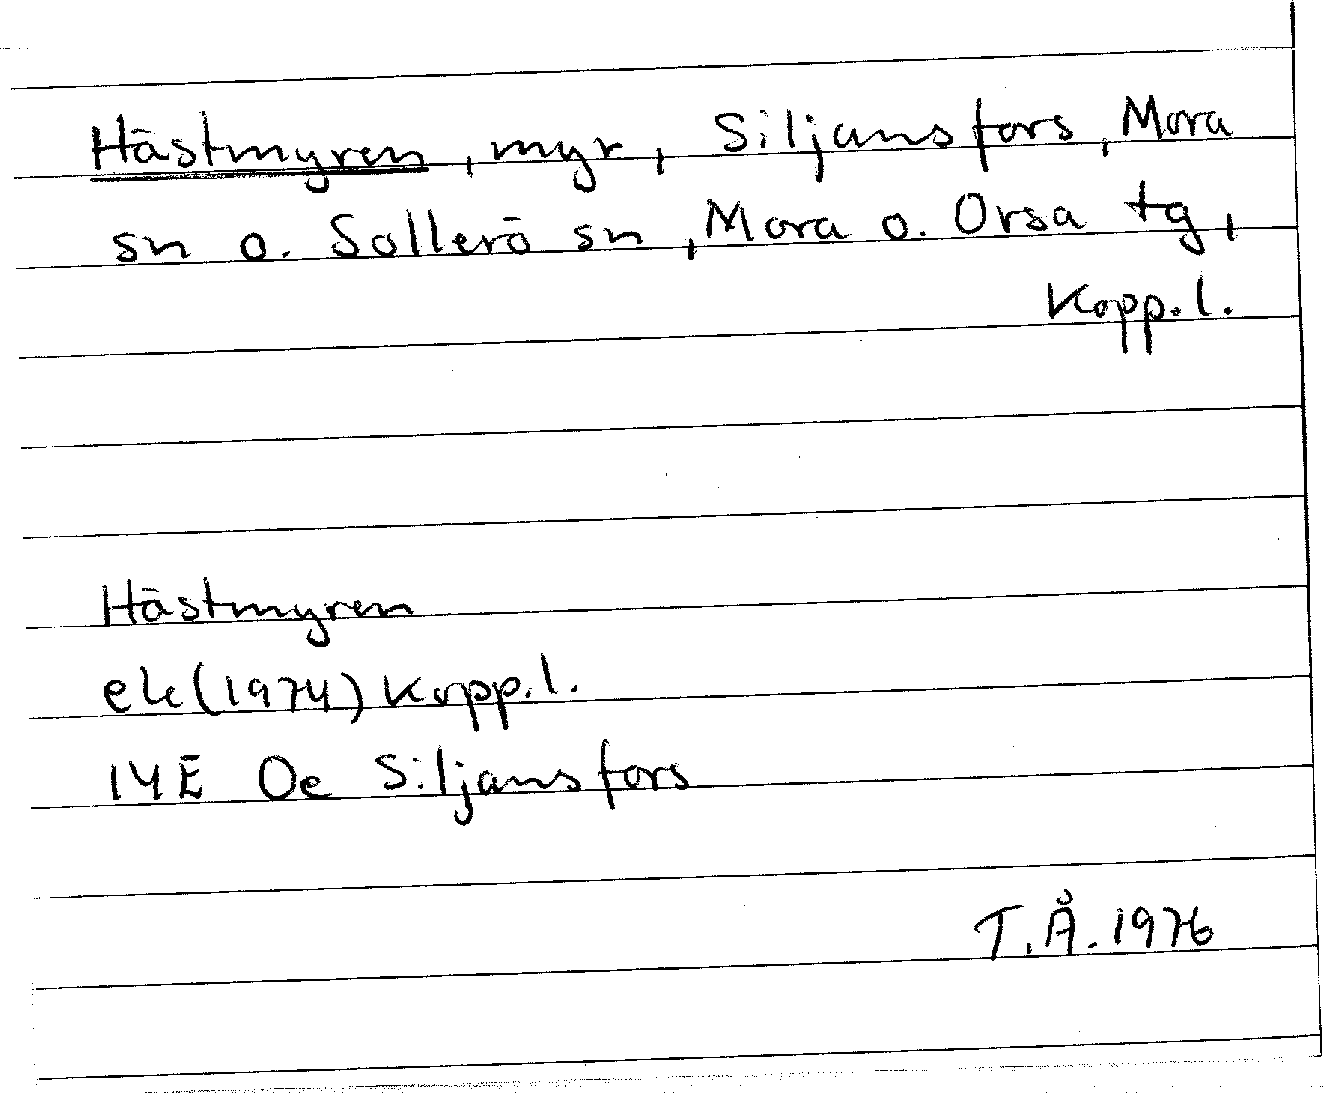 Hästmyren, myr, Siljansfors, Mora
sn o. Sollerö sn, Mora o. Orsa tg,
Kopp.l.
Hästmyren
ek (1974) Kopp.l.
14E Oe Siljansfors
T.Å. 1976